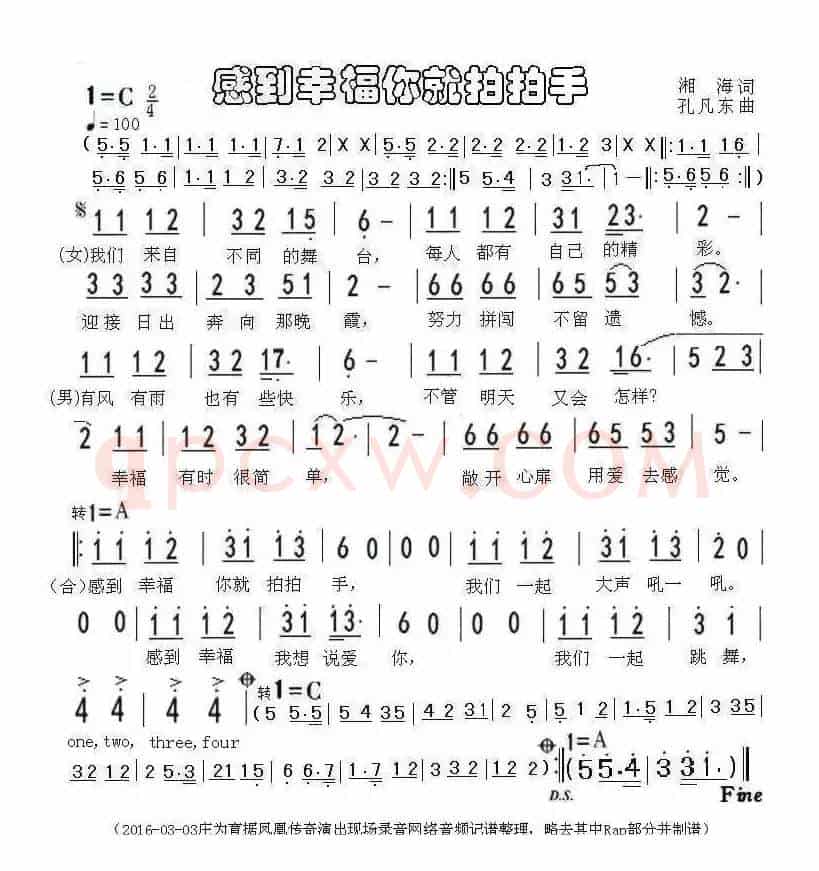 感到幸福你就拍拍手
1=C 2/4
♩=100
湘 海词
孔凡东曲
(5·5 1·1 | 1·1 1·1 | 7·1 2 | X X | 5·5 2·2 | 2·2 2·2 | 1·2 3 | X X ‖: 1·1 1 6 |
5·6 5 6 | 1·2 1·1 | 3·2 3 2 | 3 2 3 2 :‖ 5 5·4 | 3 3 1· | 1 — ‖: 5·6 5 6 :‖ )
1 1 1 2 | 3 2 1 5 | 6 - | 1 1 1 2 | 3 1 2 3· | 2 - |
(女)我们 来自 不同 的舞 台, 每人 都有 自己 的精 彩。
3 3 3 3 | 2 3 5 1 | 2 - | 6 6 6 6 | 6 5 5 3 | 3 2· |
迎接 日出 奔向 那晚 霞, 努力 拼闯 不留 遗 憾。
1 1 1 2 | 3 2 1 7· | 6 - | 1 1 1 2 | 3 2 1 6· | 5 2 3 |
(男)有风 有雨 也有 些快 乐, 不管 明天 又会 怎样?
2 1 1 | 1 2 3 2 | 1 2· | 2 - | 6 6 6 6 | 6 5 5 3 | 5 - |
幸福 有时 很简 单, 敞开 心扉 用爱 去感 觉。
qpcxw.COM
转1=A
‖: 1 1 1 2 | 3 1 1 3 | 6 0 | 0 0 | 1 1 1 2 | 3 1 1 3 | 2 0 |
(合)感到 幸福 你就 拍拍 手, 我们 一起 大声 吼一 吼。
0 0 | 1 1 1 2 | 3 1 1 3· | 6 0 | 0 0 | 1 1 1 2 | 3 1 |
感到 幸福 我想 说爱 你, 我们 一起 跳舞,
4 4 | 4 4 | 转1=C (5 5·5 | 5 4 3 5 | 2 2 3 1 | 5· 5 1 2 | 1·5 1 2 | 3 3 5 |
one,two, three,four
3 2 1 2 | 2 5·3 | 2 1 1 5 | 6 6·7 | 1·7 1 2 | 3 2 1 2 | 2 ) :‖ 1=A (5 5·4 | 3 3 1· )‖
D.S. Fine
(2016-03-03庄为育据凤凰传奇演出现场录音网络音频记谱整理, 略去其中Rap部分并制谱)